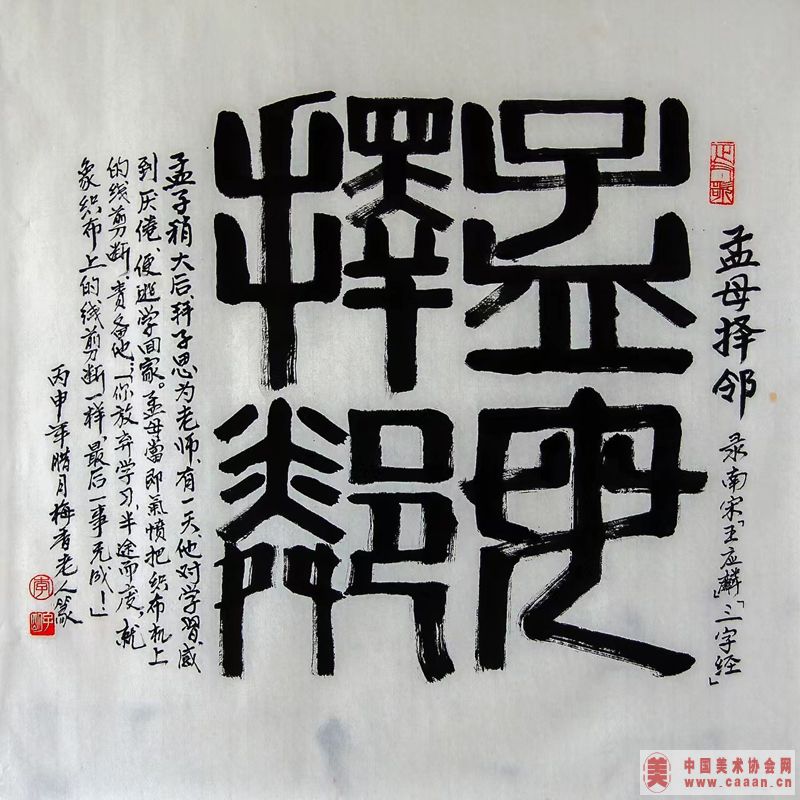 孟母择邻 录南宋「王应麟」「三字经」
孟母
擇鄰
孟子稍大后，拜子思为老师，有一天，他对学習感
到厌倦，便逃学回家。孟母當即氣愤把织布机上
的线剪断，责备他：「你放弃学习，半途而废，就
象织布上的线剪断一样，最后一事无成！」
丙申年腊月梅香老人篆
美 中国美术协会网
www.caaan.cn